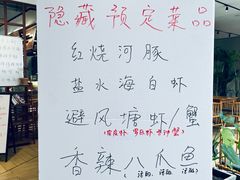 隐藏预定菜品
红烧河豚
盐水海白虾
避风塘虾/蟹
香辣八爪鱼